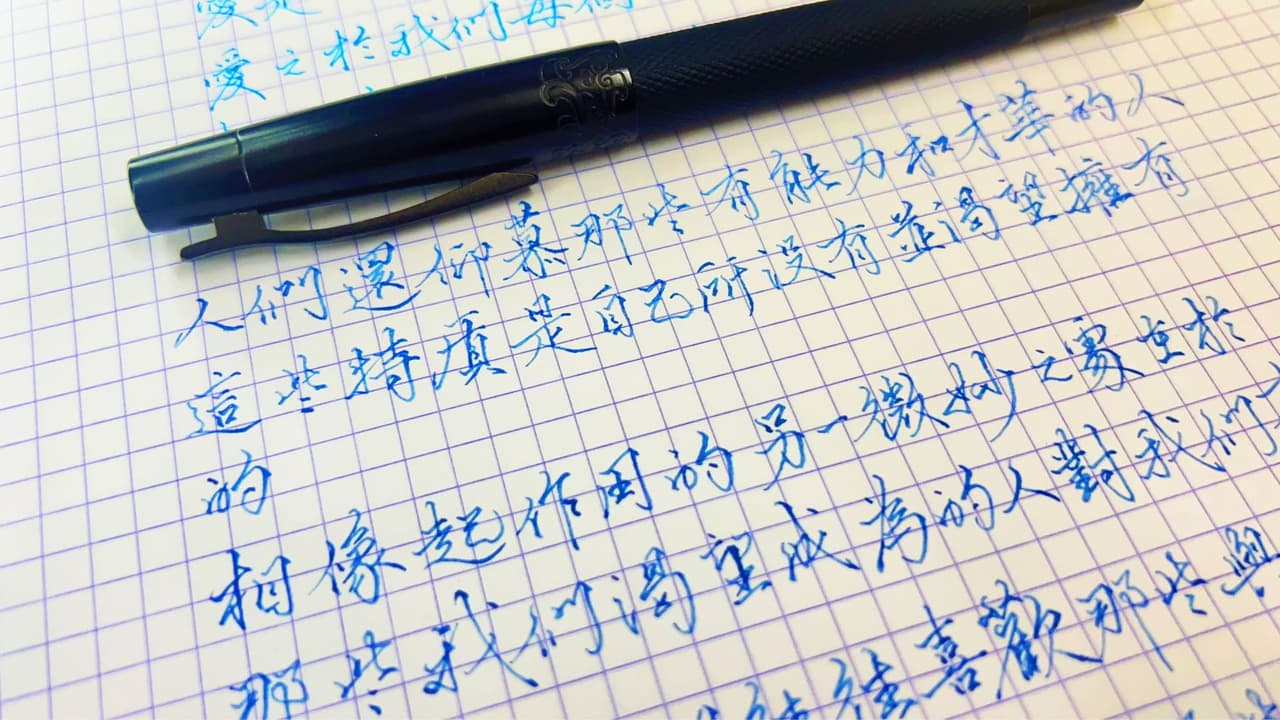 愛之於我們每個
人們還仰慕那些有能力和才華的人
這些特質是自己所没有並渴望擁有
的
相像起作用的另一微妙之處在於
那些我們渴望成為的人對我們
喜歡那些與